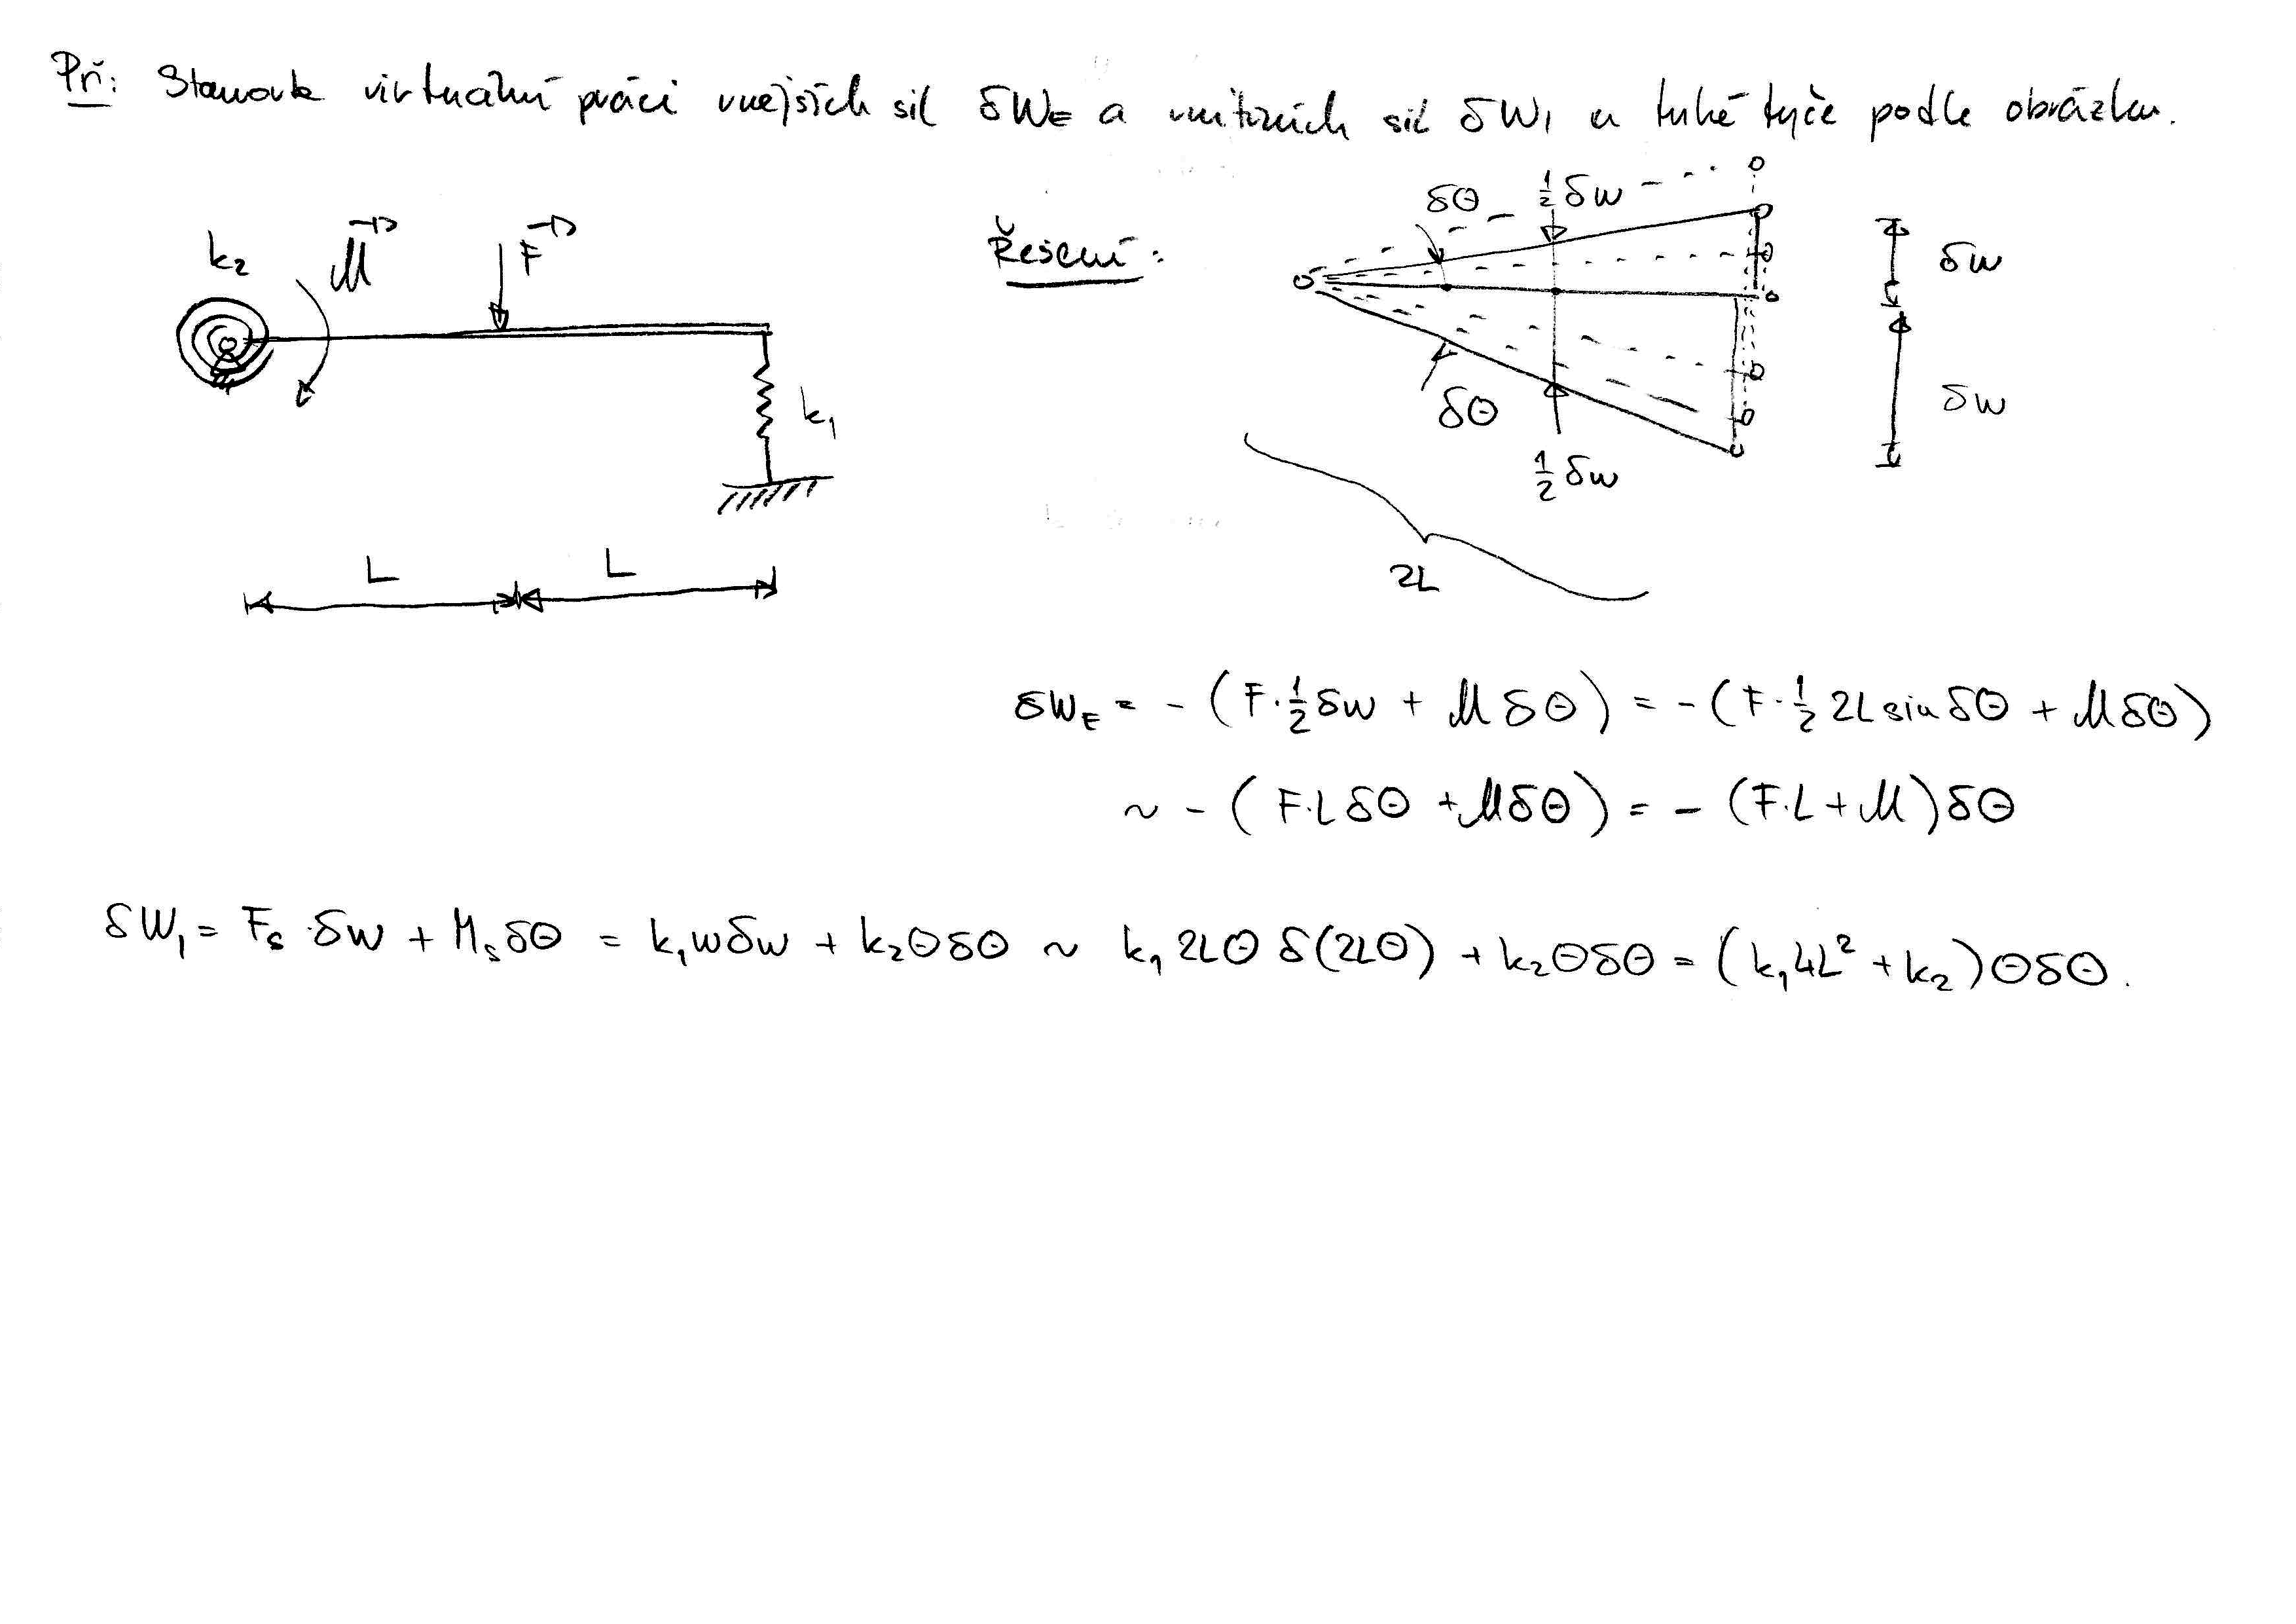 Př: Stanovte virtuální práci vnějších sil δW_E a vnitřních sil δW_I u tuhé tyče podle obrázku.
k₂ M⃗ F⃗
k₁
L L
Řešení:
δΘ ½ δw
δw
δΘ
δw
½ δw
2L
δW_E = - (F·½ δw + M δΘ) = - (F·½ 2L sin δΘ + M δΘ)
~ - (F·L δΘ + M δΘ) = - (F·L + M) δΘ
δW_I = F_s·δw + M_s δΘ = k₁wδw + k₂ΘδΘ ~ k₁ 2LΘ δ(2LΘ) + k₂ΘδΘ = (k₁4L² + k₂)ΘδΘ.